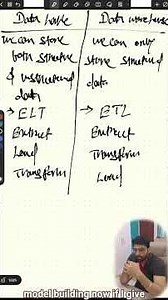 Data lake
Data warehouse
we can store
both structure
& unstructured
data
→ ELT
Extract
Load
Transform
we can only
store structured
data
→ ETL
Extract
Transform
Load
model building now if I give